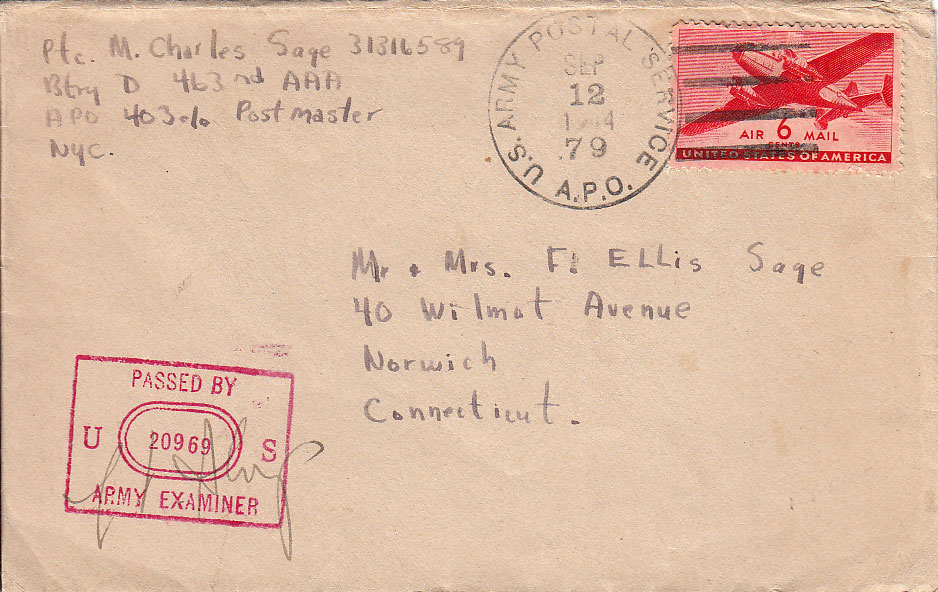 Pfc. M. Charles Sage 31316589
Btry D 463rd AAA
APO 403 c/o Postmaster
NYC.
U.S. ARMY POSTAL SERVICE
SEP
12
1944
79
A.P.O.
AIR 6 MAIL
CENTS
UNITED STATES OF AMERICA
Mr & Mrs. F. ELLis Sage
40 Wilmot Avenue
Norwich
Connecticut.
PASSED BY
U 20969 S
ARMY EXAMINER